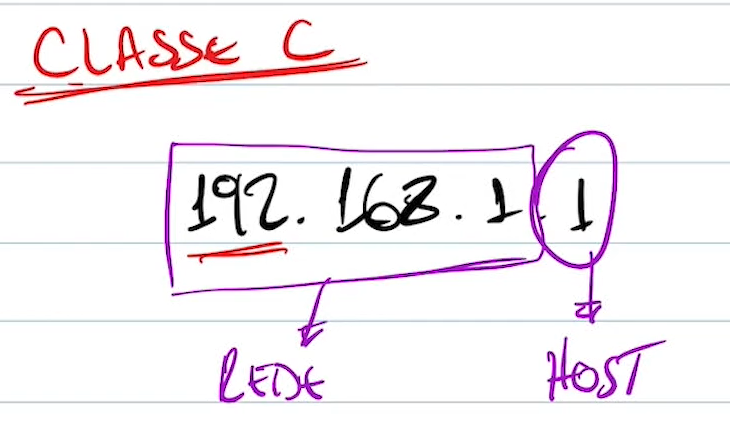 CLASSE C
192.168.1.1
REDE
HOST